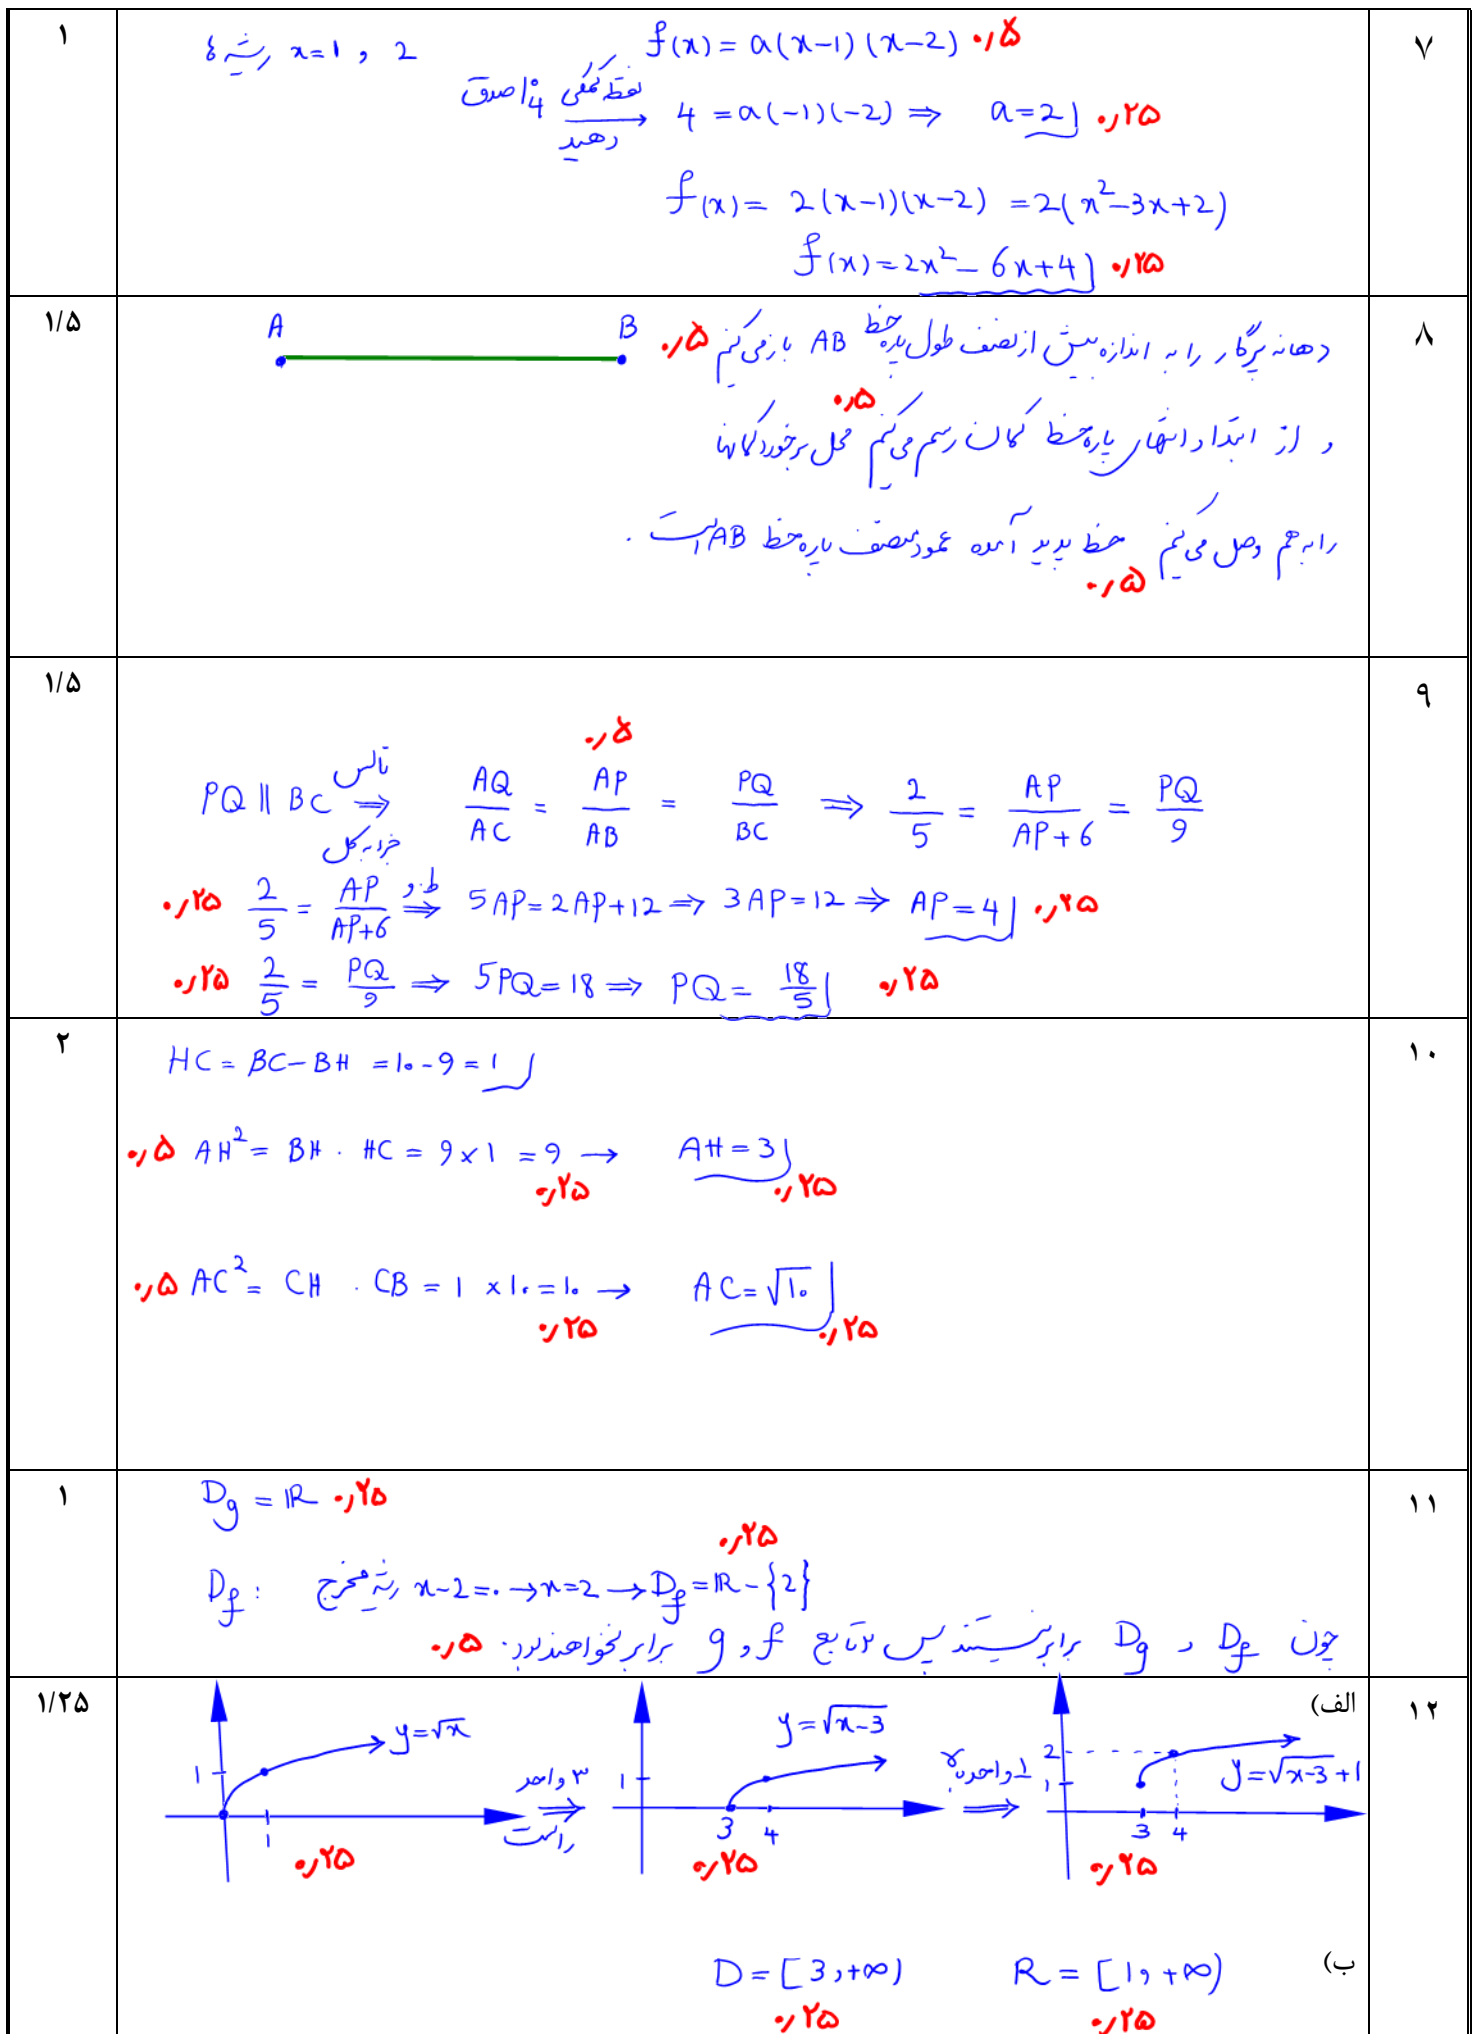 ۷
۱
f(x) = a(x-1)(x-2) ۰٫۵
ریشه ها x=1 , 2
نقطه کمکی |۰ 4 صدق دهید → 4 = a(-1)(-2) ⇒ a=2 ۰٫۲۵
f(x) = 2(x-1)(x-2) = 2(x²-3x+2)
f(x) = 2x² - 6x + 4 ۰٫۲۵
۸
۱/۵
A B
دهانه پرگار را به اندازه بیش از نصف طول پاره خط AB باز می کنیم ۰٫۵
و از ابتدا و انتهای پاره خط کمان رسم می کنیم ۰٫۵ محل برخورد کمانها
را به هم وصل می کنیم ۰٫۵ خط پدید آمده عمود منصف پاره خط AB است .
۹
۱/۵
۰٫۵
PQ || BC تالس ⇒ جزء به کل AQ/AC = AP/AB = PQ/BC ⇒ 2/5 = AP/(AP+6) = PQ/9
۰٫۲۵ 2/5 = AP/(AP+6) ط.و ⇒ 5AP = 2AP+12 ⇒ 3AP=12 ⇒ AP=4 ۰٫۲۵
۰٫۲۵ 2/5 = PQ/9 ⇒ 5PQ=18 ⇒ PQ = 18/5 ۰٫۲۵
۱۰
۲
HC = BC-BH = 1۰-9 = 1
۰٫۵ AH² = BH . HC = 9×1 = 9 → AH=3
۰٫۲۵ ۰٫۲۵
۰٫۵ AC² = CH . CB = 1×1۰ = 1۰ → AC=√1۰
۰٫۲۵ ۰٫۲۵
۱۱
۱
Dg = ℝ ۰٫۲۵
۰٫۲۵
Df : ریشه مخرج x-2=۰ → x=2 → Df = ℝ - {2}
چون Df و Dg برابر نیستند پس ۲ تابع f و g برابر نخواهند بود. ۰٫۵
۱۲
۱/۲۵
الف)
y=√x
1
1
۰٫۲۵
۳ واحد ⇒ راست
y=√x-3
1
3 4
۰٫۲۵
۱ واحد بالا ⇒
2
1
y=√x-3+1
3 4
۰٫۲۵
ب)
D = [3,+∞) R = [1,+∞)
۰٫۲۵ ۰٫۲۵